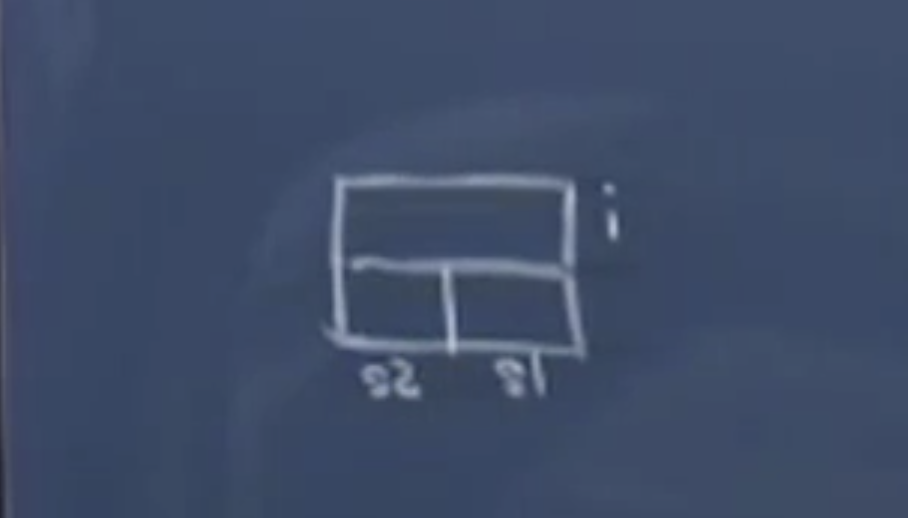 i
s2 s1